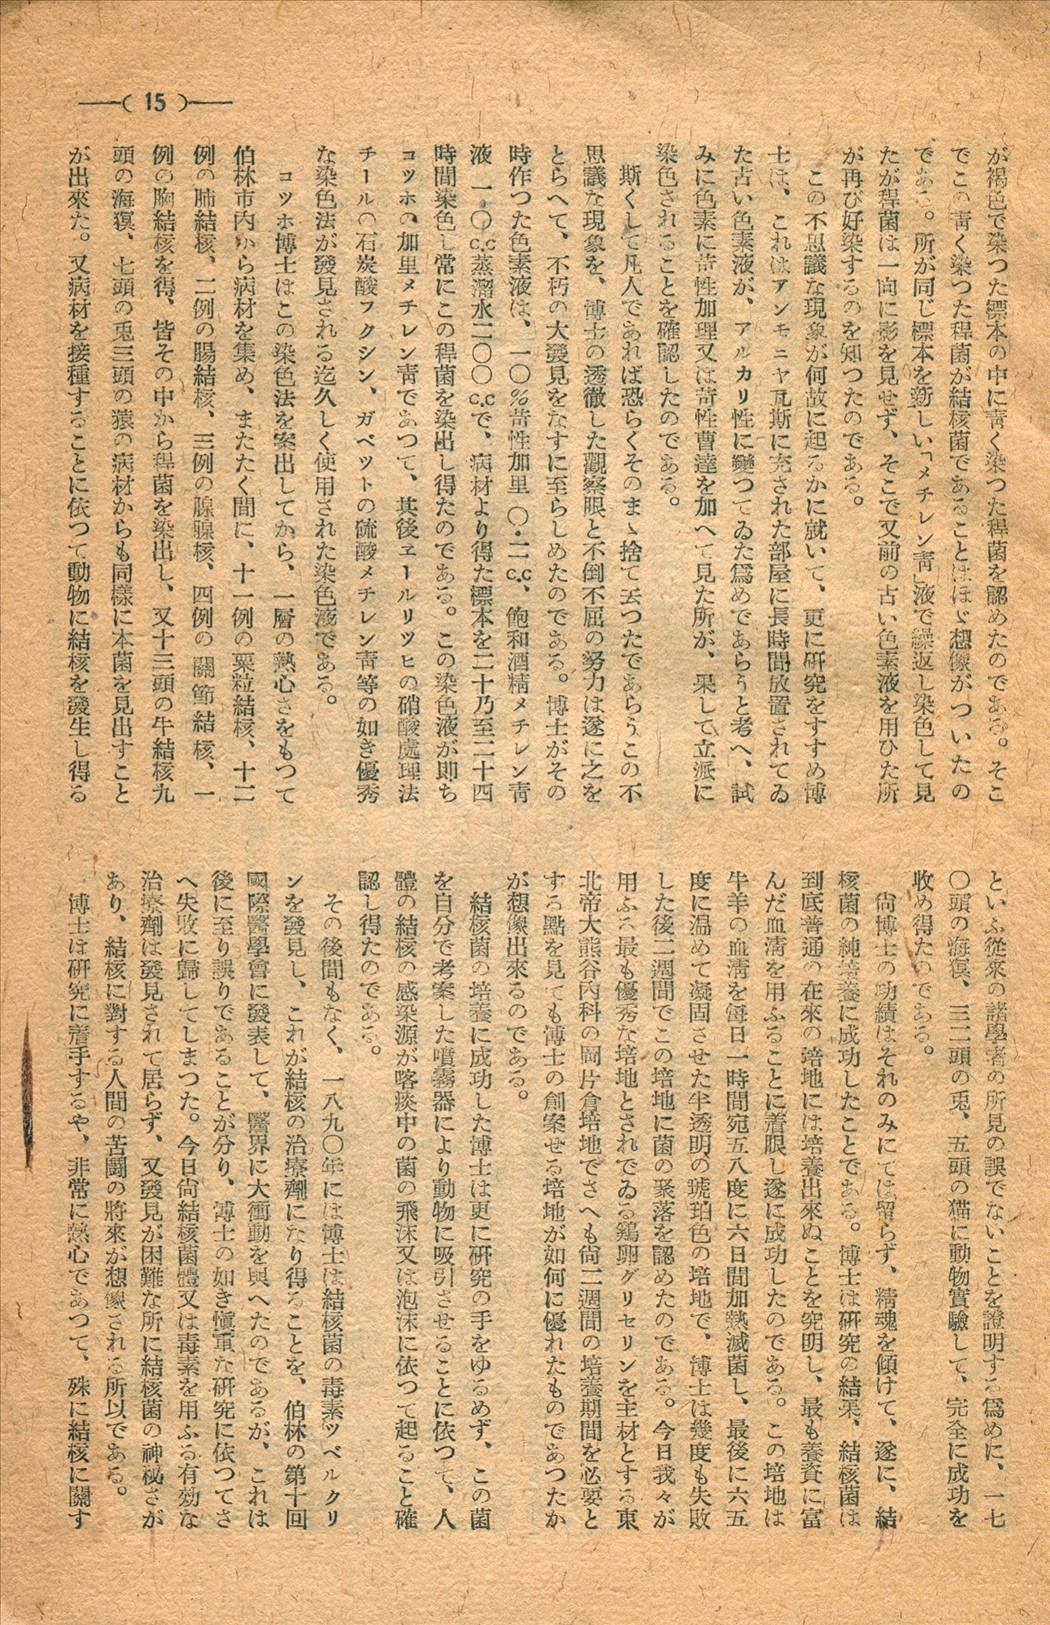 ( 15 )
が褐色で染つた標本の中に靑く染つた稈菌を認めたのである。そこ
でこの靑く染つた稈菌が結核菌であることはほゞ想像がついたの
である。所が同じ標本を新しい「メチレン靑」液で繰返し染色して見
たが稈菌は一向に影を見せず、そこで又前の古い色素液を用ひた所
が再び好染するのを知つたのである。
この不思議な現象が何故に起るかに就いて、更に硏究をすすめ博
士は、これはアンモニヤ瓦斯に充された部屋に長時間放置されてゐ
た古い色素液が、アルカリ性に變つてゐた爲めであらうと考へ、試
みに色素に苛性加理又は苛性曹達を加へて見た所が、果して立派に
染色されることを確認したのである。
斯くして凡人であれば恐らくそのまゝ捨て去つたであらうこの不
思議な現象を、博士の透徹した觀察眼と不倒不屈の努力は遂に之を
とらへて、不朽の大發見をなすに至らしめたのである。博士がその
時作つた色素液は、一〇%苛性加里 〇・二c.c、飽和酒精メチレン靑
液 一.〇c.c蒸溜水二〇〇c.cで、病材より得た標本を二十乃至二十四
時間染色し常にこの稈菌を染出し得たのである。この染色液が卽ち
コツホの加里メチレン靑であつて、其後ヱールリツヒの硝酸處理法
チールの石炭酸フクシン、ガベツトの硫酸メチレン靑等の如き優秀
な染色法が發見される迄久しく使用された染色液である。
コツホ博士はこの染色法を案出してから、一層の熱心さをもつて
伯林市內から病材を集め、またたく間に、十一例の粟粒結核、十二
例の肺結核、二例の腸結核、三例の腺腺核、四例の關節結核、一
例の胸結核を得、皆その中から稈菌を染出し、又十三頭の牛結核九
頭の海猽、七頭の兎三頭の猿の病材からも同樣に本菌を見出すこと
が出來た。又病材を接種することに依つて動物に結核を發生し得る
といふ從來の諸學者の所見の誤でないことを證明する爲めに、一七
〇頭の海猽、三二頭の兎、五頭の猫に動物實驗して、完全に成功を
收め得たのである。
尙博士の功績はそれのみにては留らず、精魂を傾けて、遂に、結
核菌の純培養に成功したことである。博士は硏究の結果、結核菌は
到底普通の在來の培地には培養出來ぬことを究明し、最も養資に富
んだ血淸を用ふることに着眼し遂に成功したのである。この培地は
牛羊の血淸を每日一時間宛五八度に六日間加熱滅菌し、最後に六五
度に温めて凝固させた半透明の琥珀色の培地で、博士は幾度も失敗
した後二週間でこの培地に菌の聚落を認めたのである。今日我々が
用ふる最も優秀な培地とされでゐる鷄卵グリセリンを主材とする東
北帝大熊谷內科の岡片倉培地でさへも尙二週間の培養期間を必要と
する點を見ても博士の創案せる培地が如何に優れたものであつたか
が想像出來るのである。
結核菌の培養に成功した博士は更に硏究の手をゆるめず、この菌
を自分で考案した噴霧器により動物に吸引させることに依つて、人
體の結核の感染源が喀痰中の菌の飛沫又は泡沫に依つて起ること確
認し得たのである。
その後間もなく、一八九〇年には博士は結核菌の毒素ツベルクリ
ンを發見し、これが結核の治療劑になり得ることを、伯林の第十回
國際醫學會に發表して、醫界に大衝動を與へたのであるが、これは
後に至り誤りであることが分り、博士の如き愼重な硏究に依つてさ
へ失敗に歸してしまつた。今日尙結核菌體又は毒素を用ふる有効な
治療劑は發見されて居らず、又發見が困難な所に結核菌の神秘さが
あり、結核に對する人間の苦鬪の將來が想像される所以である。
博士は硏究に着手するや、非常に熱心であつて、殊に結核に關す